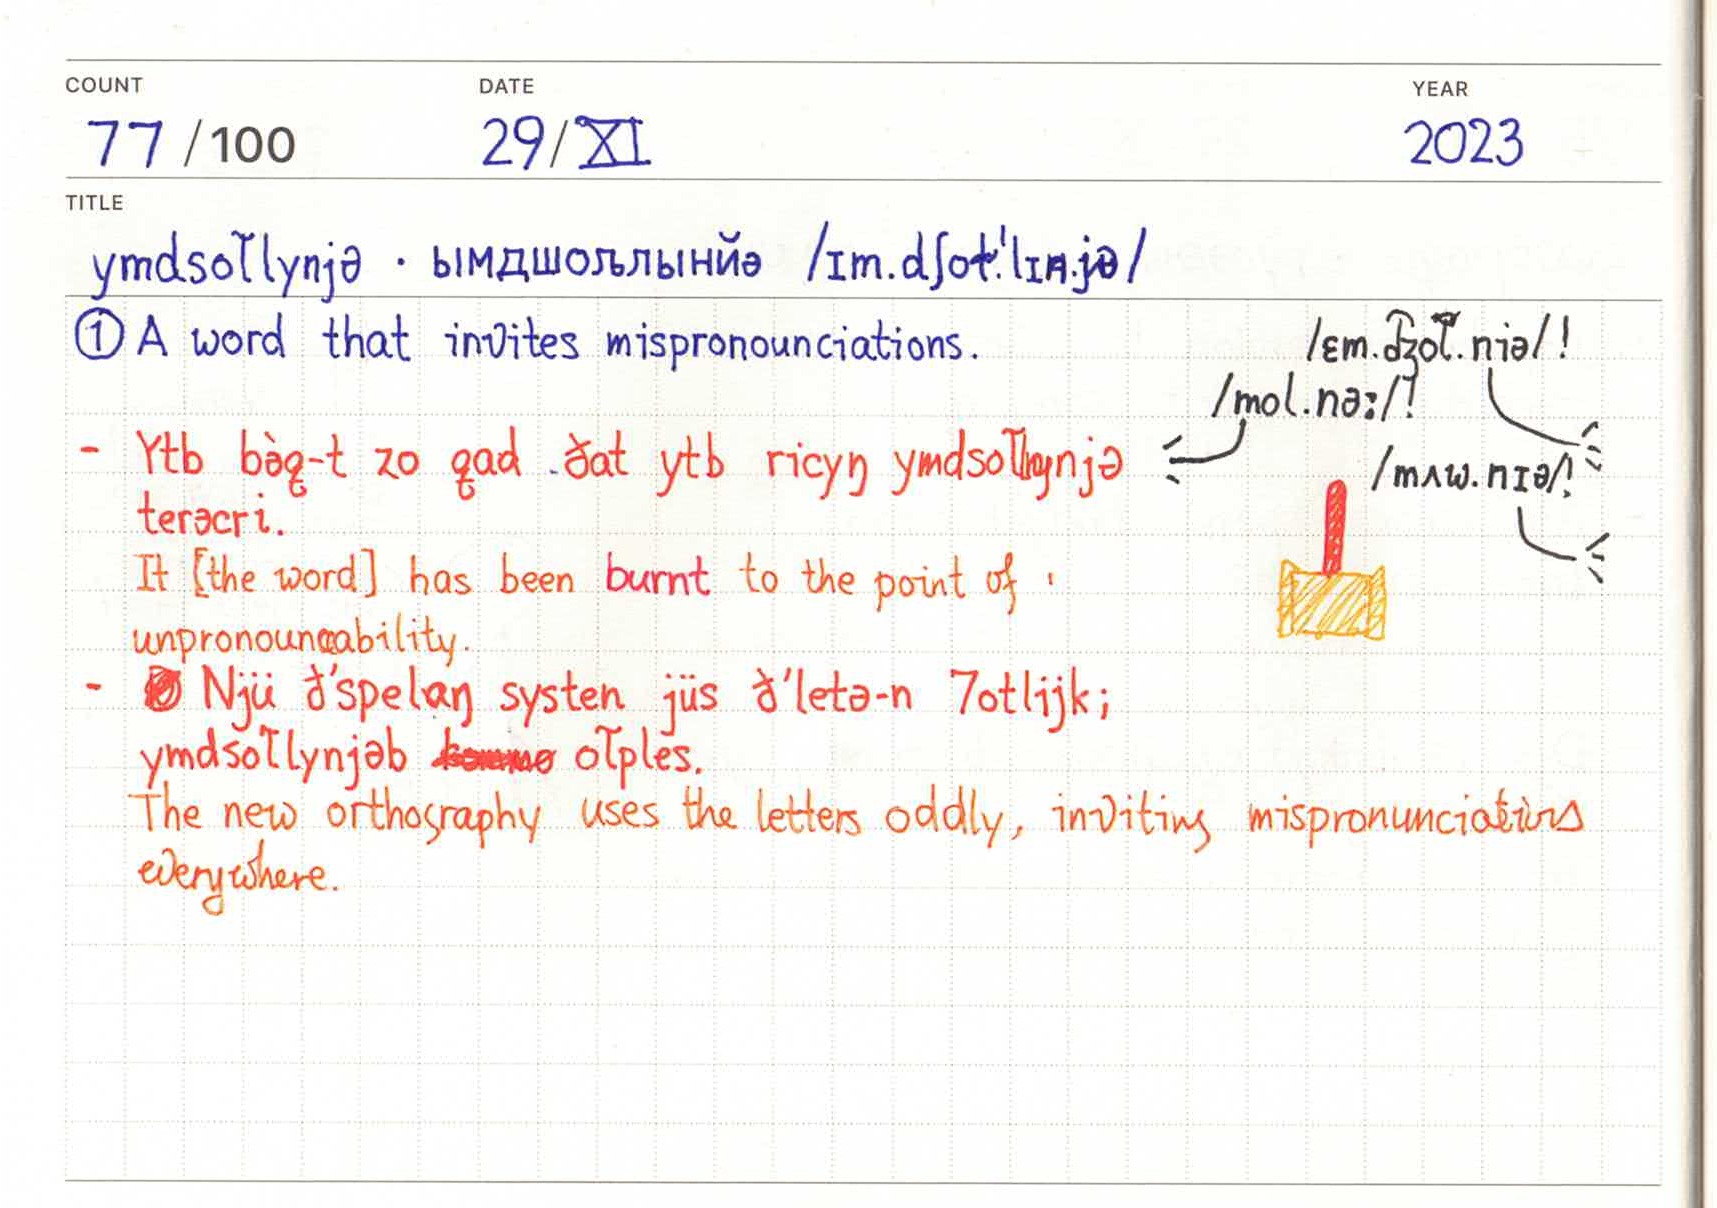 COUNT DATE YEAR
77 /100 29/XI 2023
TITLE
ymdsol̆lynjə · ымдшољлынйə
① A word that invites mispronounciations.
/ɛm.d͡ʒol̆.niə/!
/mol.nəː/!
- Ytb bə̀q-t zo qad ðat ytb ricyŋ
terəcri.
/mʌw.nɪə/!
It [the word] has been burnt to the point of
unpronouncability.
- Njü ð'spelaŋ systen jüs ð'letə-n 7otlijk;
ymdsol̆lynjəb ol̆ples.
The new orthography uses the letters oddly, inviting mispronunciations
everywhere.